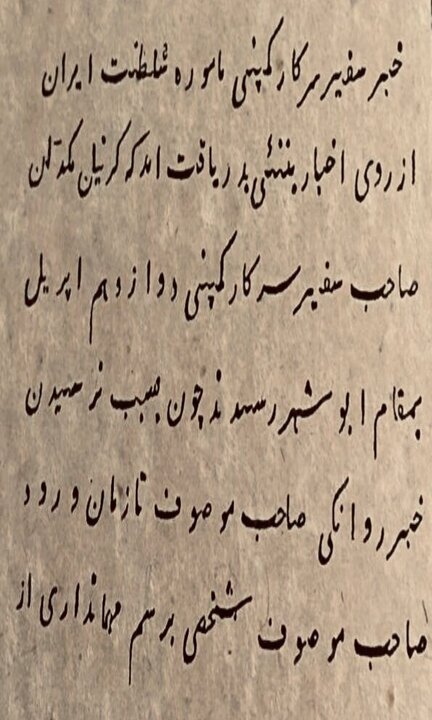 خبر سفیر سرکار کمپنی ماموره سلطنت ایران
از روی اخبار بنبئی بدریافت امد که کرنیل مکدتلن
صاحب سفیر سرکار کمپنی دوازدهم اپریل
بمقام ابو شهر رسیدند چون بسبب نرسیدن
خبر روانکی صاحب موصوف تا زمان ورود
صاحب موصوف شخصی برسم مهمانداری از